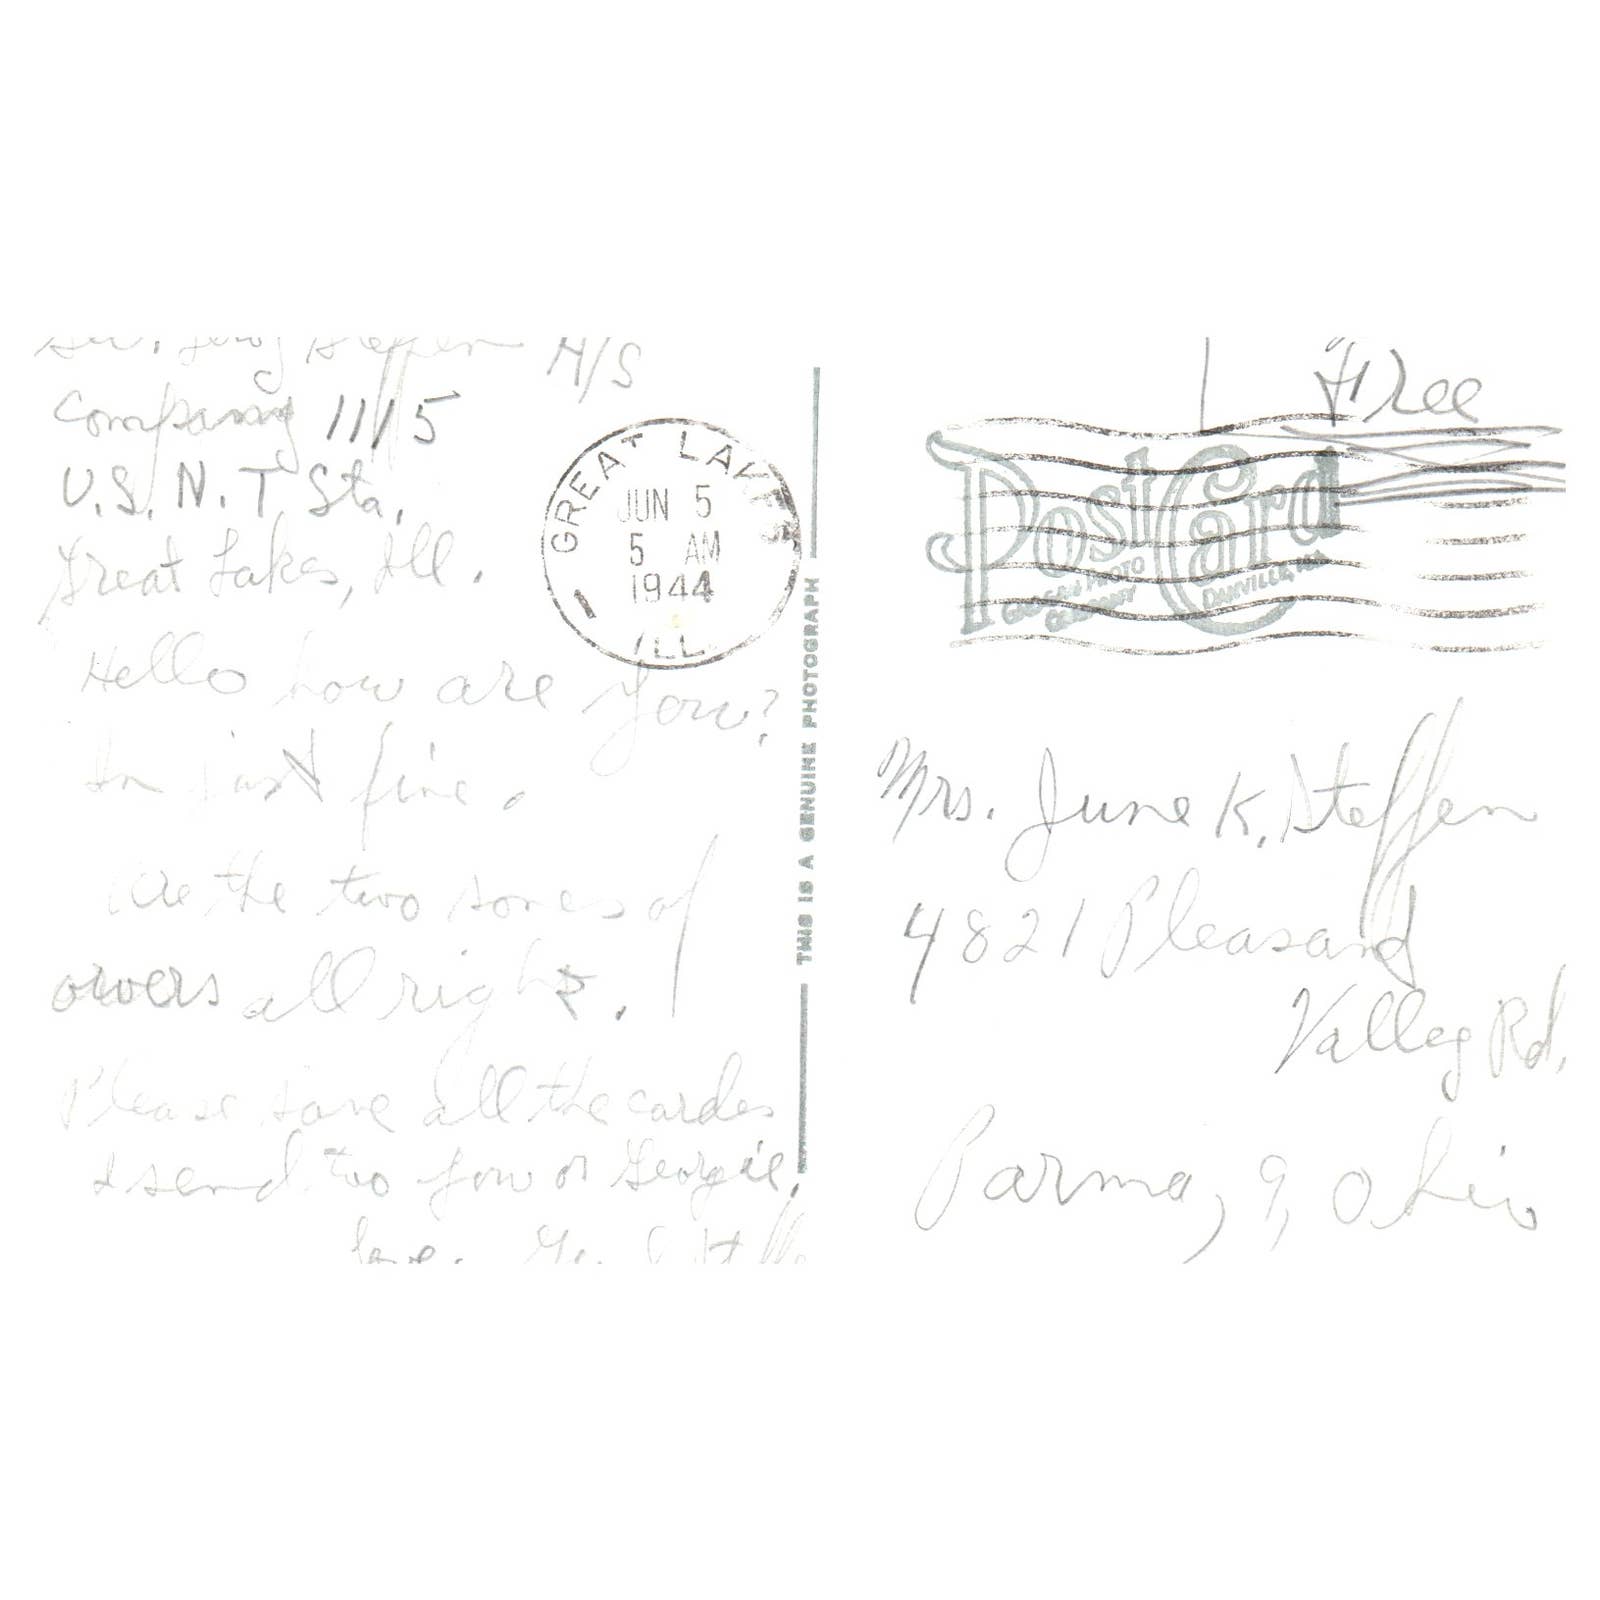 Steffen A/S
Company 1115
U.S.N.T Sta.
Great Lakes, Ill.
GREAT LAKES
JUN 5
5 AM
1944
1
ILL.
Hello how are you?
In just fine.
Are the two sones of
orvers all right.
Please save all the cardes
I send two you or Georgie.
love.
THIS IS A GENUINE PHOTOGRAPH
Free
PostCard
GRAYCRAFT PHOTO
COMPANY
DANVILLE, ILL.
Mrs. June K. Steffen
4821 Pleasand
Valley Rd.
Parma, 9, Ohio